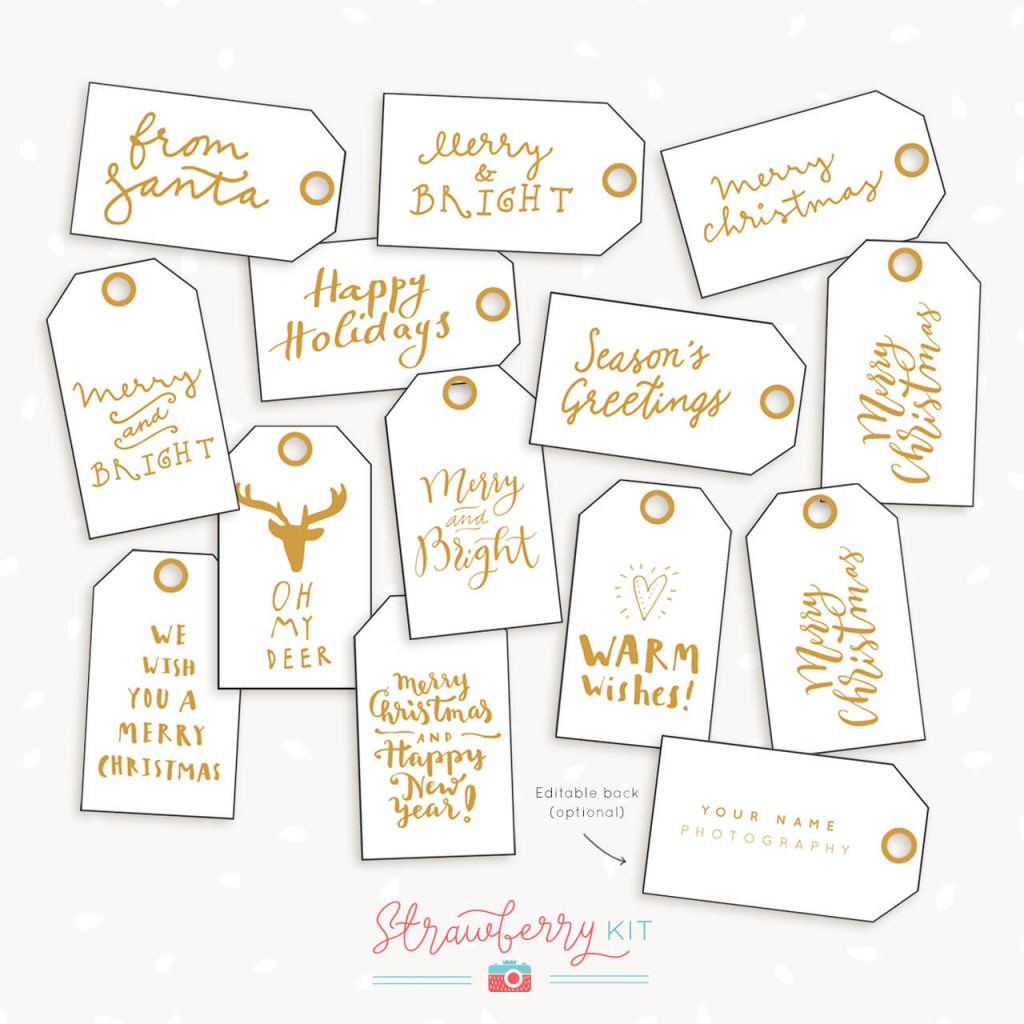 from
Santa
Merry
&
BRIGHT
Merry
Christmas
Happy
Holidays
Season's
Greetings
Merry
Christmas
Merry
and
BRIGHT
Merry
and
Bright
OH
MY
DEER
WARM
Wishes!
Merry
Christmas
WE
WISH
YOU A
MERRY
CHRISTMAS
Merry
Christmas
AND
Happy
New
Year!
Editable back
(optional)
YOUR NAME
PHOTOGRAPHY
Strawberry KIT